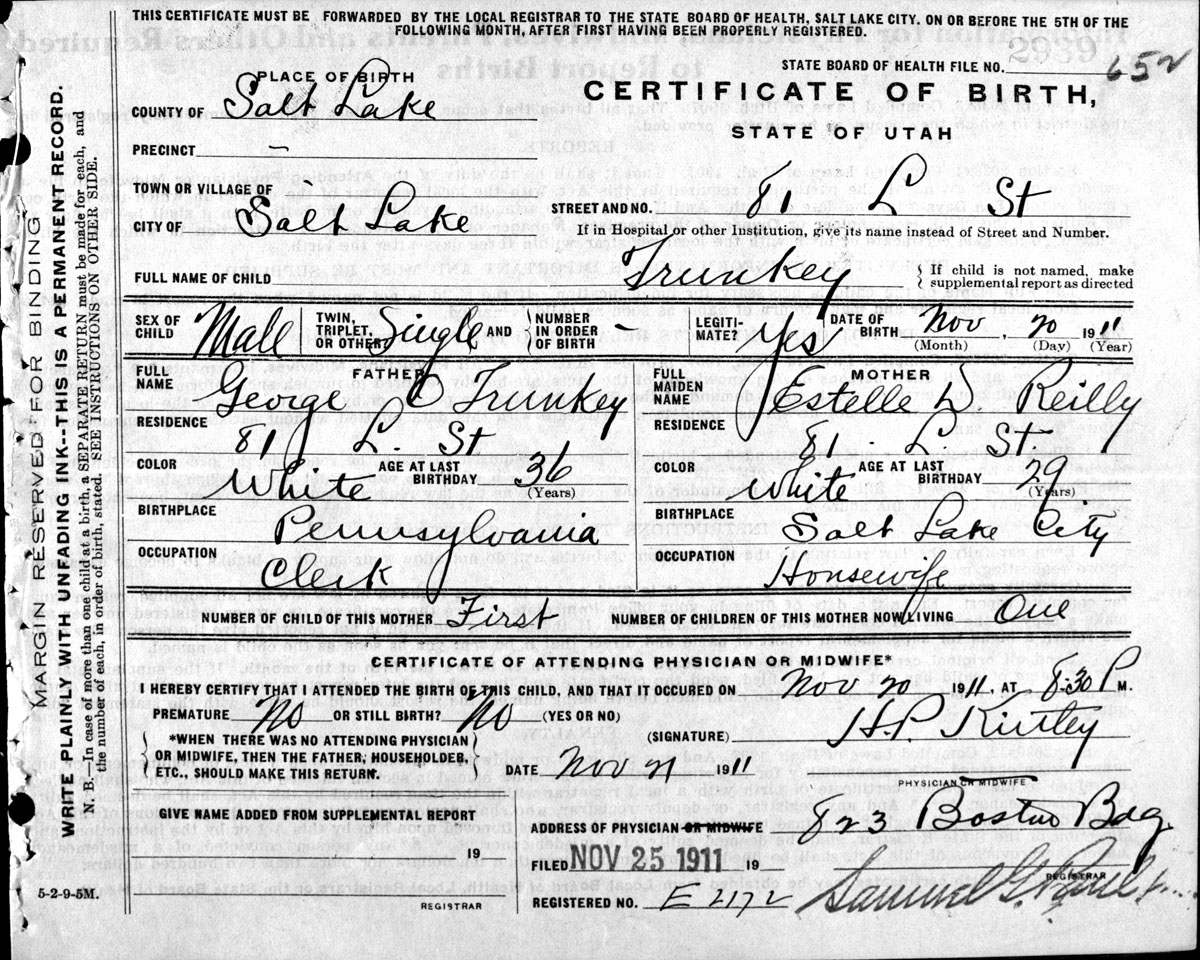 THIS CERTIFICATE MUST BE FORWARDED BY THE LOCAL REGISTRAR TO THE STATE BOARD OF HEALTH, SALT LAKE CITY. ON OR BEFORE THE 5TH OF THE
FOLLOWING MONTH, AFTER FIRST HAVING BEEN PROPERLY REGISTERED.
STATE BOARD OF HEALTH FILE NO. 652
PLACE OF BIRTH
CERTIFICATE OF BIRTH,
COUNTY OF Salt Lake
STATE OF UTAH
PRECINCT –
TOWN OR VILLAGE OF
STREET AND NO. 81 L St
CITY OF Salt Lake
If in Hospital or other Institution, give its name instead of Street and Number.
FULL NAME OF CHILD Trunkey { If child is not named, make
supplemental report as directed
SEX OF CHILD Male TWIN, TRIPLET, OR OTHER Single AND { NUMBER IN ORDER OF BIRTH – LEGITI-MATE? Yes DATE OF BIRTH Nov, 20 1911
(Month) (Day) (Year)
FATHER
FULL NAME George C Trunkey
RESIDENCE
81 L. St
COLOR White AGE AT LAST BIRTHDAY 36
(Years)
BIRTHPLACE
Pennsylvania
OCCUPATION
Clerk
MOTHER
FULL MAIDEN NAME Estelle D Reilly
RESIDENCE
81. L St.
COLOR White AGE AT LAST BIRTHDAY 29
(Years)
BIRTHPLACE
Salt Lake City
OCCUPATION
Housewife
NUMBER OF CHILD OF THIS MOTHER First NUMBER OF CHILDREN OF THIS MOTHER NOW LIVING One
CERTIFICATE OF ATTENDING PHYSICIAN OR MIDWIFE*
I HEREBY CERTIFY THAT I ATTENDED THE BIRTH OF THIS CHILD, AND THAT IT OCCURED ON Nov 20 1911, AT 8:30 P M.
PREMATURE No OR STILL BIRTH? No (YES OR NO)
(SIGNATURE) H.P. Kirtley
{ *WHEN THERE WAS NO ATTENDING PHYSICIAN
OR MIDWIFE, THEN THE FATHER, HOUSEHOLDER,
ETC., SHOULD MAKE THIS RETURN. }
DATE Nov 21 1911
PHYSICIAN OR MIDWIFE
GIVE NAME ADDED FROM SUPPLEMENTAL REPORT
19
REGISTRAR
ADDRESS OF PHYSICIAN OR MIDWIFE 823 Boston Bdg
FILED NOV 25 1911 19
REGISTRAR
REGISTERED NO. E 2172 Samuel G.
5-2-9-5M.
MARGIN RESERVED FOR BINDING
WRITE PLAINLY WITH UNFADING INK--THIS IS A PERMANENT RECORD.
N. B.—In case of more than one child at a birth, SEPARATE RETURN must be made for each, and
the number of each, in order of birth, stated. SEE INSTRUCTIONS ON OTHER SIDE.